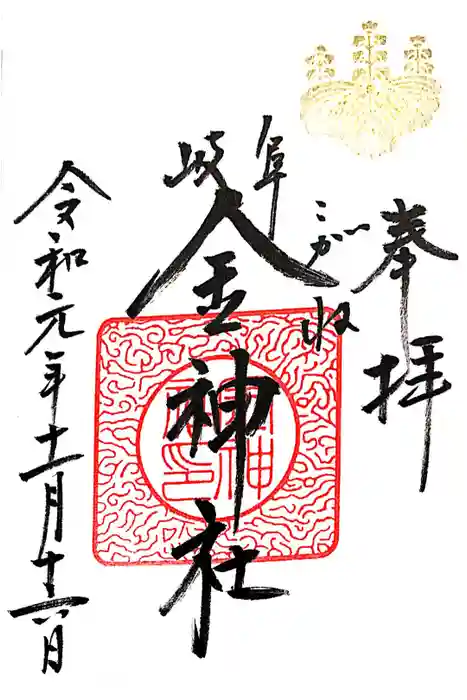 奉拝
岐阜
こがね
金神社
令和元年十一月十六日